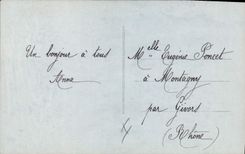 Un bonjour à tous
Anna
Melle Eugénie Poncet
à Montagny
par Givors
(Rhône)